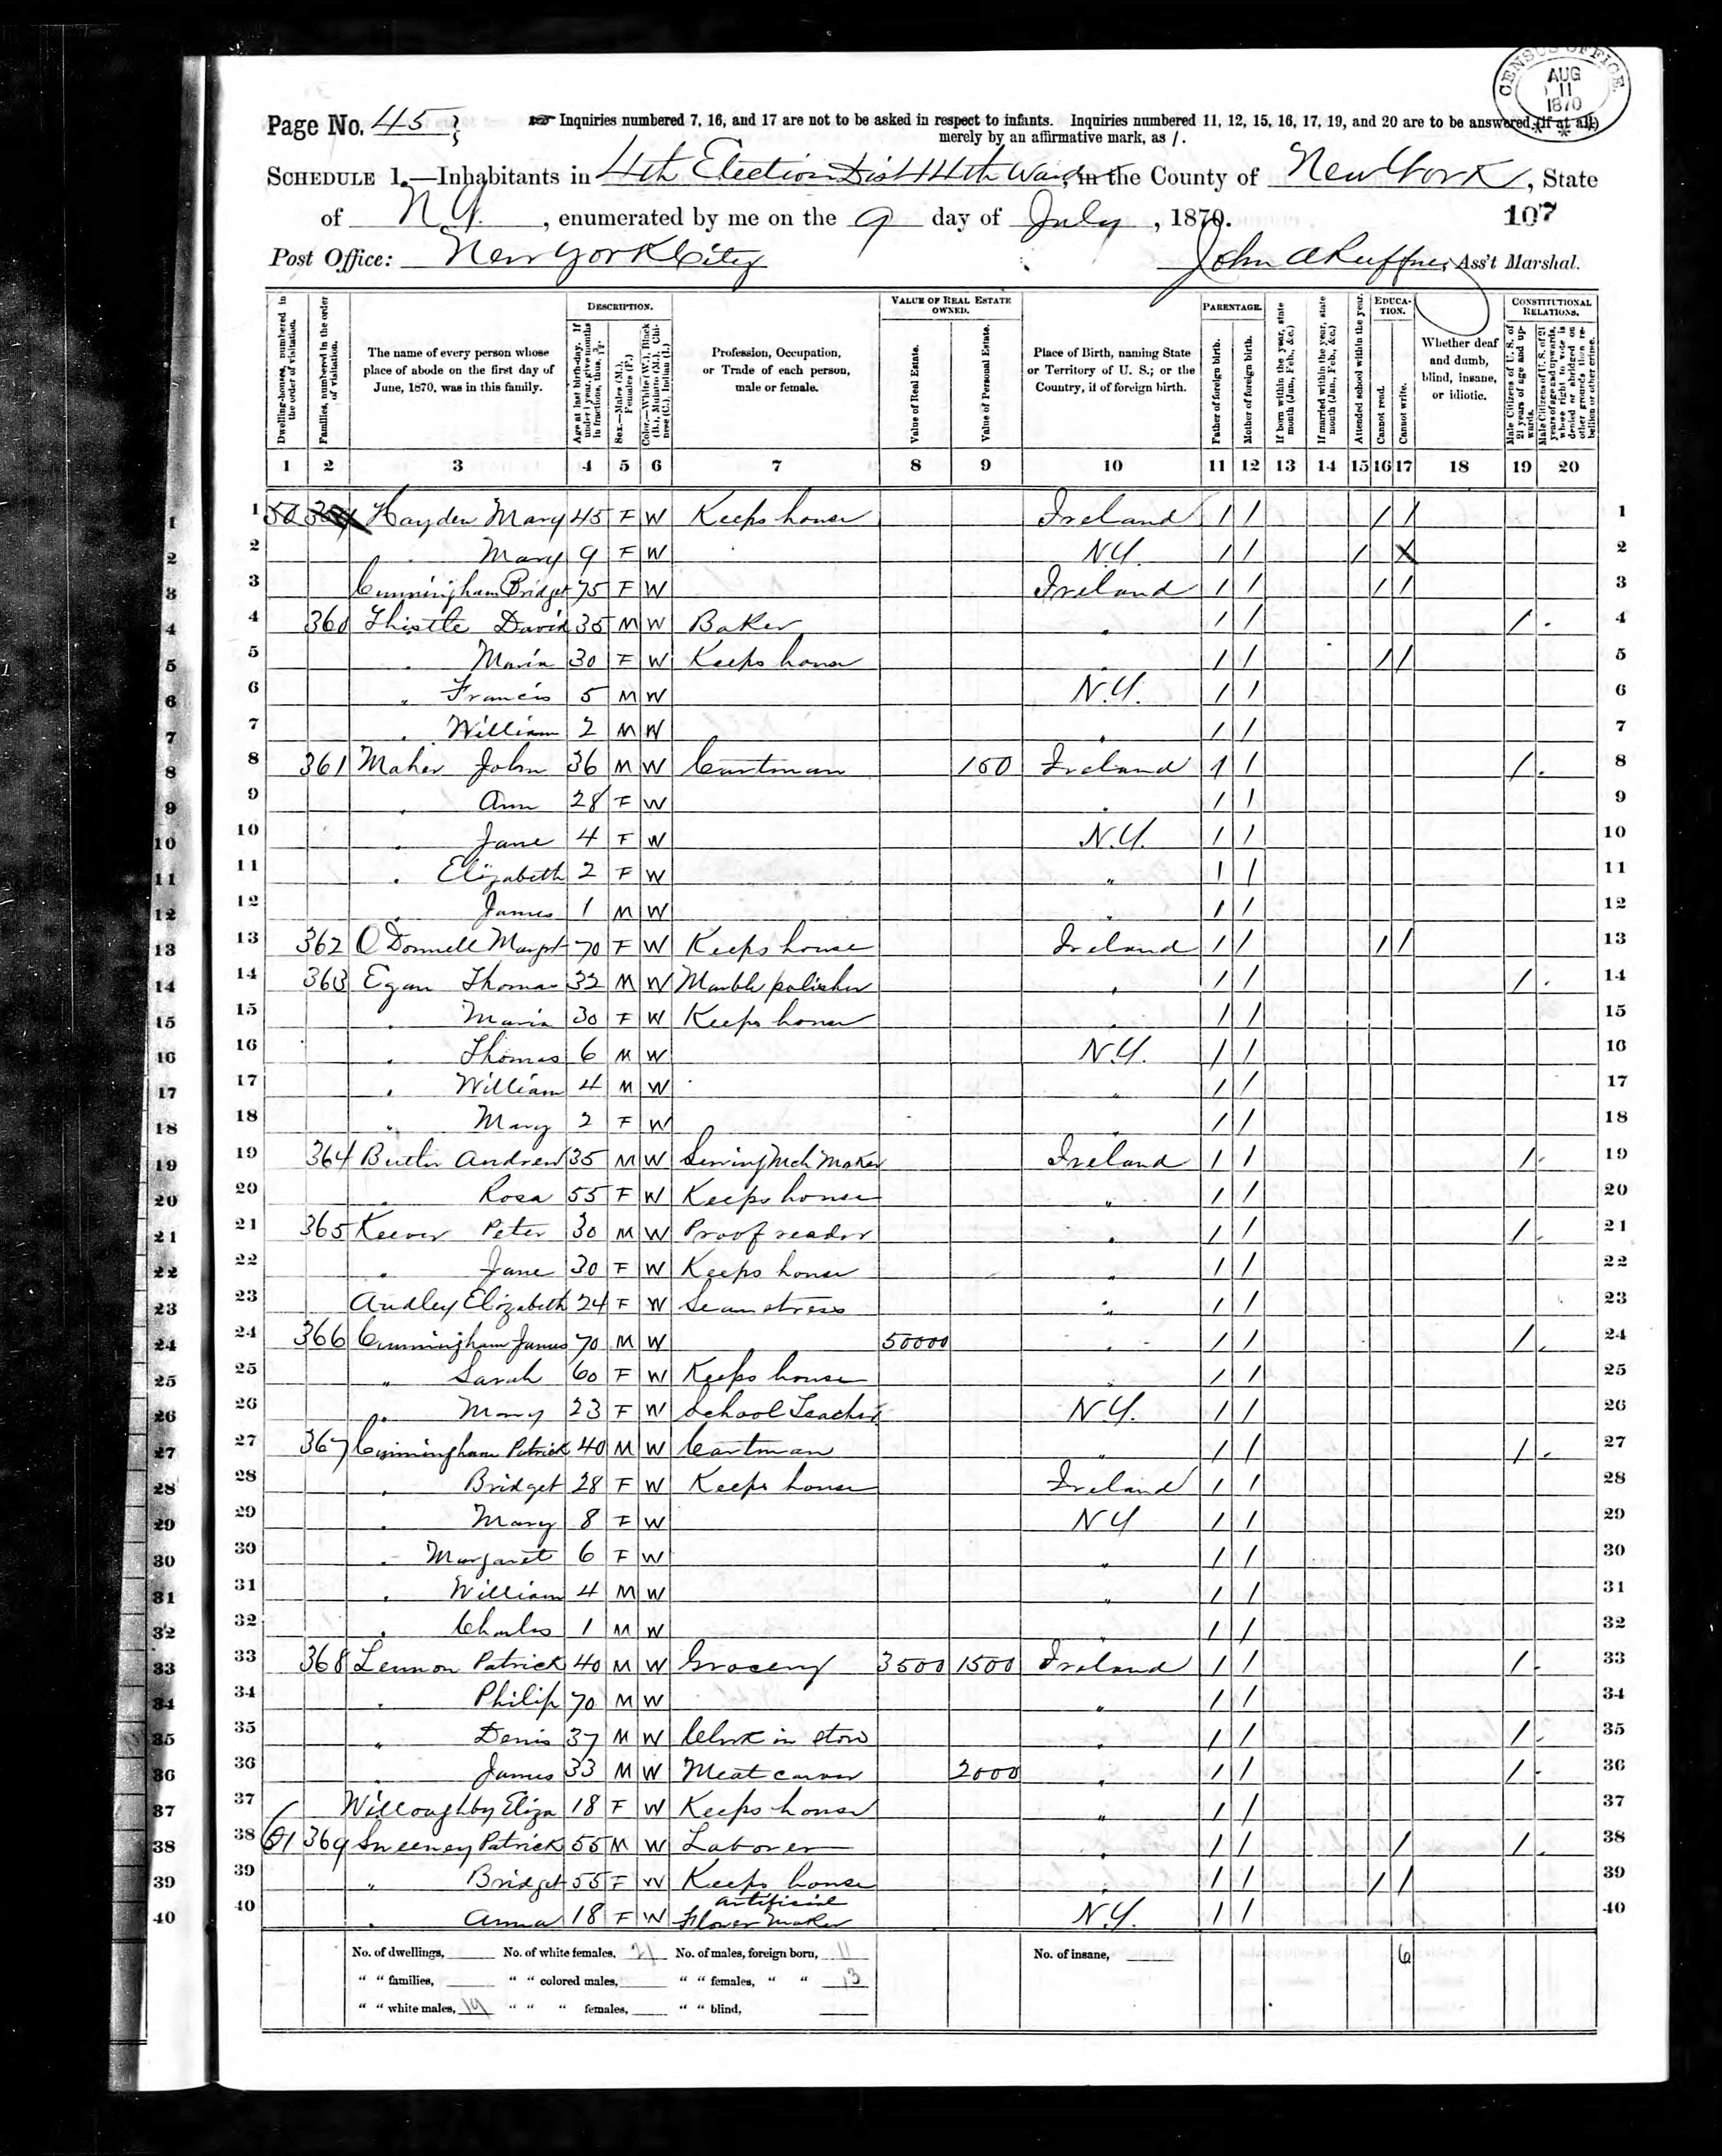 CENSUS OFFICE.
AUG
11
1870
Page No. 45
Inquiries numbered 7, 16, and 17 are not to be asked in respect to infants. Inquiries numbered 11, 12, 15, 16, 17, 19, and 20 are to be answered (if at all)
merely by an affirmative mark, as /.
SCHEDULE 1.—Inhabitants in 4th Election Dist 4th Ward, in the County of New York, State
of N.Y., enumerated by me on the 9 day of July, 1870.
107
Post Office: New York City
John A Ruffner, Ass't Marshal.
DESCRIPTION.
VALUE OF REAL ESTATE OWNED.
PARENTAGE.
EDUCATION.
CONSTITUTIONAL RELATIONS.
Dwelling-houses, numbered in the order of visitation.
Families, numbered in the order of visitation.
The name of every person whose place of abode on the first day of June, 1870, was in this family.
Age at last birth-day. If under 1 year, give months in fractions, thus, 3/12.
Sex.—Males (M.), Females (F.)
Color.—White (W.), Black (B.), Mulatto (M.), Chinese (C.), Indian (I.)
Profession, Occupation, or Trade of each person, male or female.
Value of Real Estate.
Value of Personal Estate.
Place of Birth, naming State or Territory of U. S.; or the Country, if of foreign birth.
Father of foreign birth.
Mother of foreign birth.
If born within the year, state month (Jan., Feb., &c.)
If married within the year, state month (Jan., Feb., &c.)
Attended school within the year.
Cannot read.
Cannot write.
Whether deaf and dumb, blind, insane, or idiotic.
Male Citizens of U. S. of 21 years of age and upwards.
Male Citizens of U. S. of 21 years of age and upwards, whose right to vote is denied or abridged on other grounds than rebellion or other crime.
1 2 3 4 5 6 7 8 9 10 11 12 13 14 15 16 17 18 19 20
1 Hayden Mary 45 F W Keeps house Ireland / / / / 1
2 Mary 9 F W N.Y. / / / X 2
3 Cunningham Bridget 75 F W Ireland / / / / 3
4 360 Thistle David 35 M W Baker " / / / 4
5 " Maria 30 F W Keeps house " / / / / 5
6 " Francis 5 M W N.Y. / / 6
7 " William 2 M W " / / 7
8 361 Maher John 36 M W Cartman 150 Ireland / / / 8
9 " Ann 28 F W " / / 9
10 " Jane 4 F W N.Y. / / 10
11 " Elizabeth 2 F W " / / 11
12 " James 1 M W " / / 12
13 362 O'Donnell Margt 70 F W Keeps house Ireland / / / / 13
14 363 Egan Thomas 32 M W Marble polisher " / / / 14
15 " Maria 30 F W Keeps house " / / 15
16 " Thomas 6 M W N.Y. / / 16
17 " William 4 M W " / / 17
18 " Mary 2 F W " / / 18
19 364 Butler Andrew 35 M W Sewing Mch Maker Ireland / / / 19
20 " Rosa 55 F W Keeps house " / / 20
21 365 Keever Peter 30 M W Proof reader " / / / 21
22 " Jane 30 F W Keeps house " / / 22
23 Audley Elizabeth 24 F W Seamstress " / / 23
24 366 Cunningham James 70 M W 50000 " / / / 24
25 " Sarah 60 F W Keeps house " / / 25
26 " Mary 23 F W School Teacher N.Y. / / 26
27 367 Cunningham Patrick 40 M W Cartman " / / / 27
28 " Bridget 28 F W Keeps house Ireland / / 28
29 " Mary 8 F W N.Y. / / 29
30 " Margaret 6 F W " / / 30
31 " William 4 M W " / / 31
32 " Charles 1 M W " / / 32
33 368 Lennon Patrick 40 M W Grocery 3500 1500 Ireland / / / 33
34 " Philip 70 M W " / / 34
35 " Denis 37 M W Clerk in store " / / / 35
36 " James 33 M W Meat carver 2000 " / / / 36
37 Willoughby Eliza 18 F W Keeps house " / / 37
38 61 369 Sweeney Patrick 55 M W Laborer " / / / / 38
39 " Bridget 55 F W Keeps house " / / / / 39
40 " Anna 18 F W Artificial Flower Maker N.Y. / / 40
No. of dwellings, No. of white females, 21 No. of males, foreign born, 11 No. of insane, 6
" " families, " " colored males, " " females, " " 13
" " white males, 19 " " " females, " " blind,